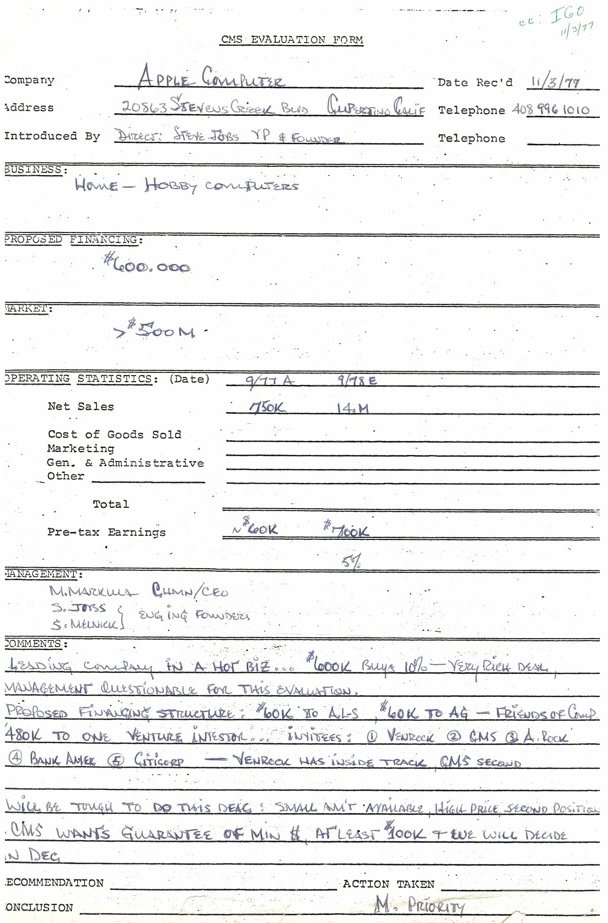 cc: IGO
11/3/77
CMS EVALUATION FORM
Company APPLE COMPUTER Date Rec'd 11/3/77
Address 20863 STEVENS CREEK BLVD CUPERTINO CALIF Telephone 408 996 1010
Introduced By DIRECT: STEVE JOBS VP & FOUNDER Telephone
BUSINESS:
HOME — HOBBY COMPUTERS
PROPOSED FINANCING:
$600.000
MARKET:
>$500M.
OPERATING STATISTICS: (Date) 9/77 A 9/78 E
Net Sales 750K 14.M
Cost of Goods Sold
Marketing
Gen. & Administrative
Other
Total
Pre-tax Earnings ~$60K $700K
5%
MANAGEMENT:
M. MARKULA CHMN/CEO
S. JOBS } ENGING FOUNDERS
S. MELNICK
COMMENTS:
LEADING COMPANY IN A HOT BIZ... $600K BUYS 10% — VERY RICH DEAL,
MANAGEMENT QUESTIONABLE FOR THIS EVALUATION.
PROPOSED FINANCING STRUCTURE: $60K TO ALS, $60K TO AG — FRIENDS OF COMP
480K TO ONE VENTURE INVESTOR... INVITEES: ① VENROCK ② CMS ③ A. ROCK
④ BANK AMER ⑤ CITICORP — VENROCK HAS INSIDE TRACK, CMS SECOND
WILL BE TOUGH TO DO THIS DEAL: SMALL AM'T AVAILABLE, HIGH PRICE, SECOND POSITION
CMS WANTS GUARANTEE OF MIN $, AT LEAST $300K & WE WILL DECIDE
IN DEC
ECOMMENDATION ACTION TAKEN
ONCLUSION M. PRIORITY